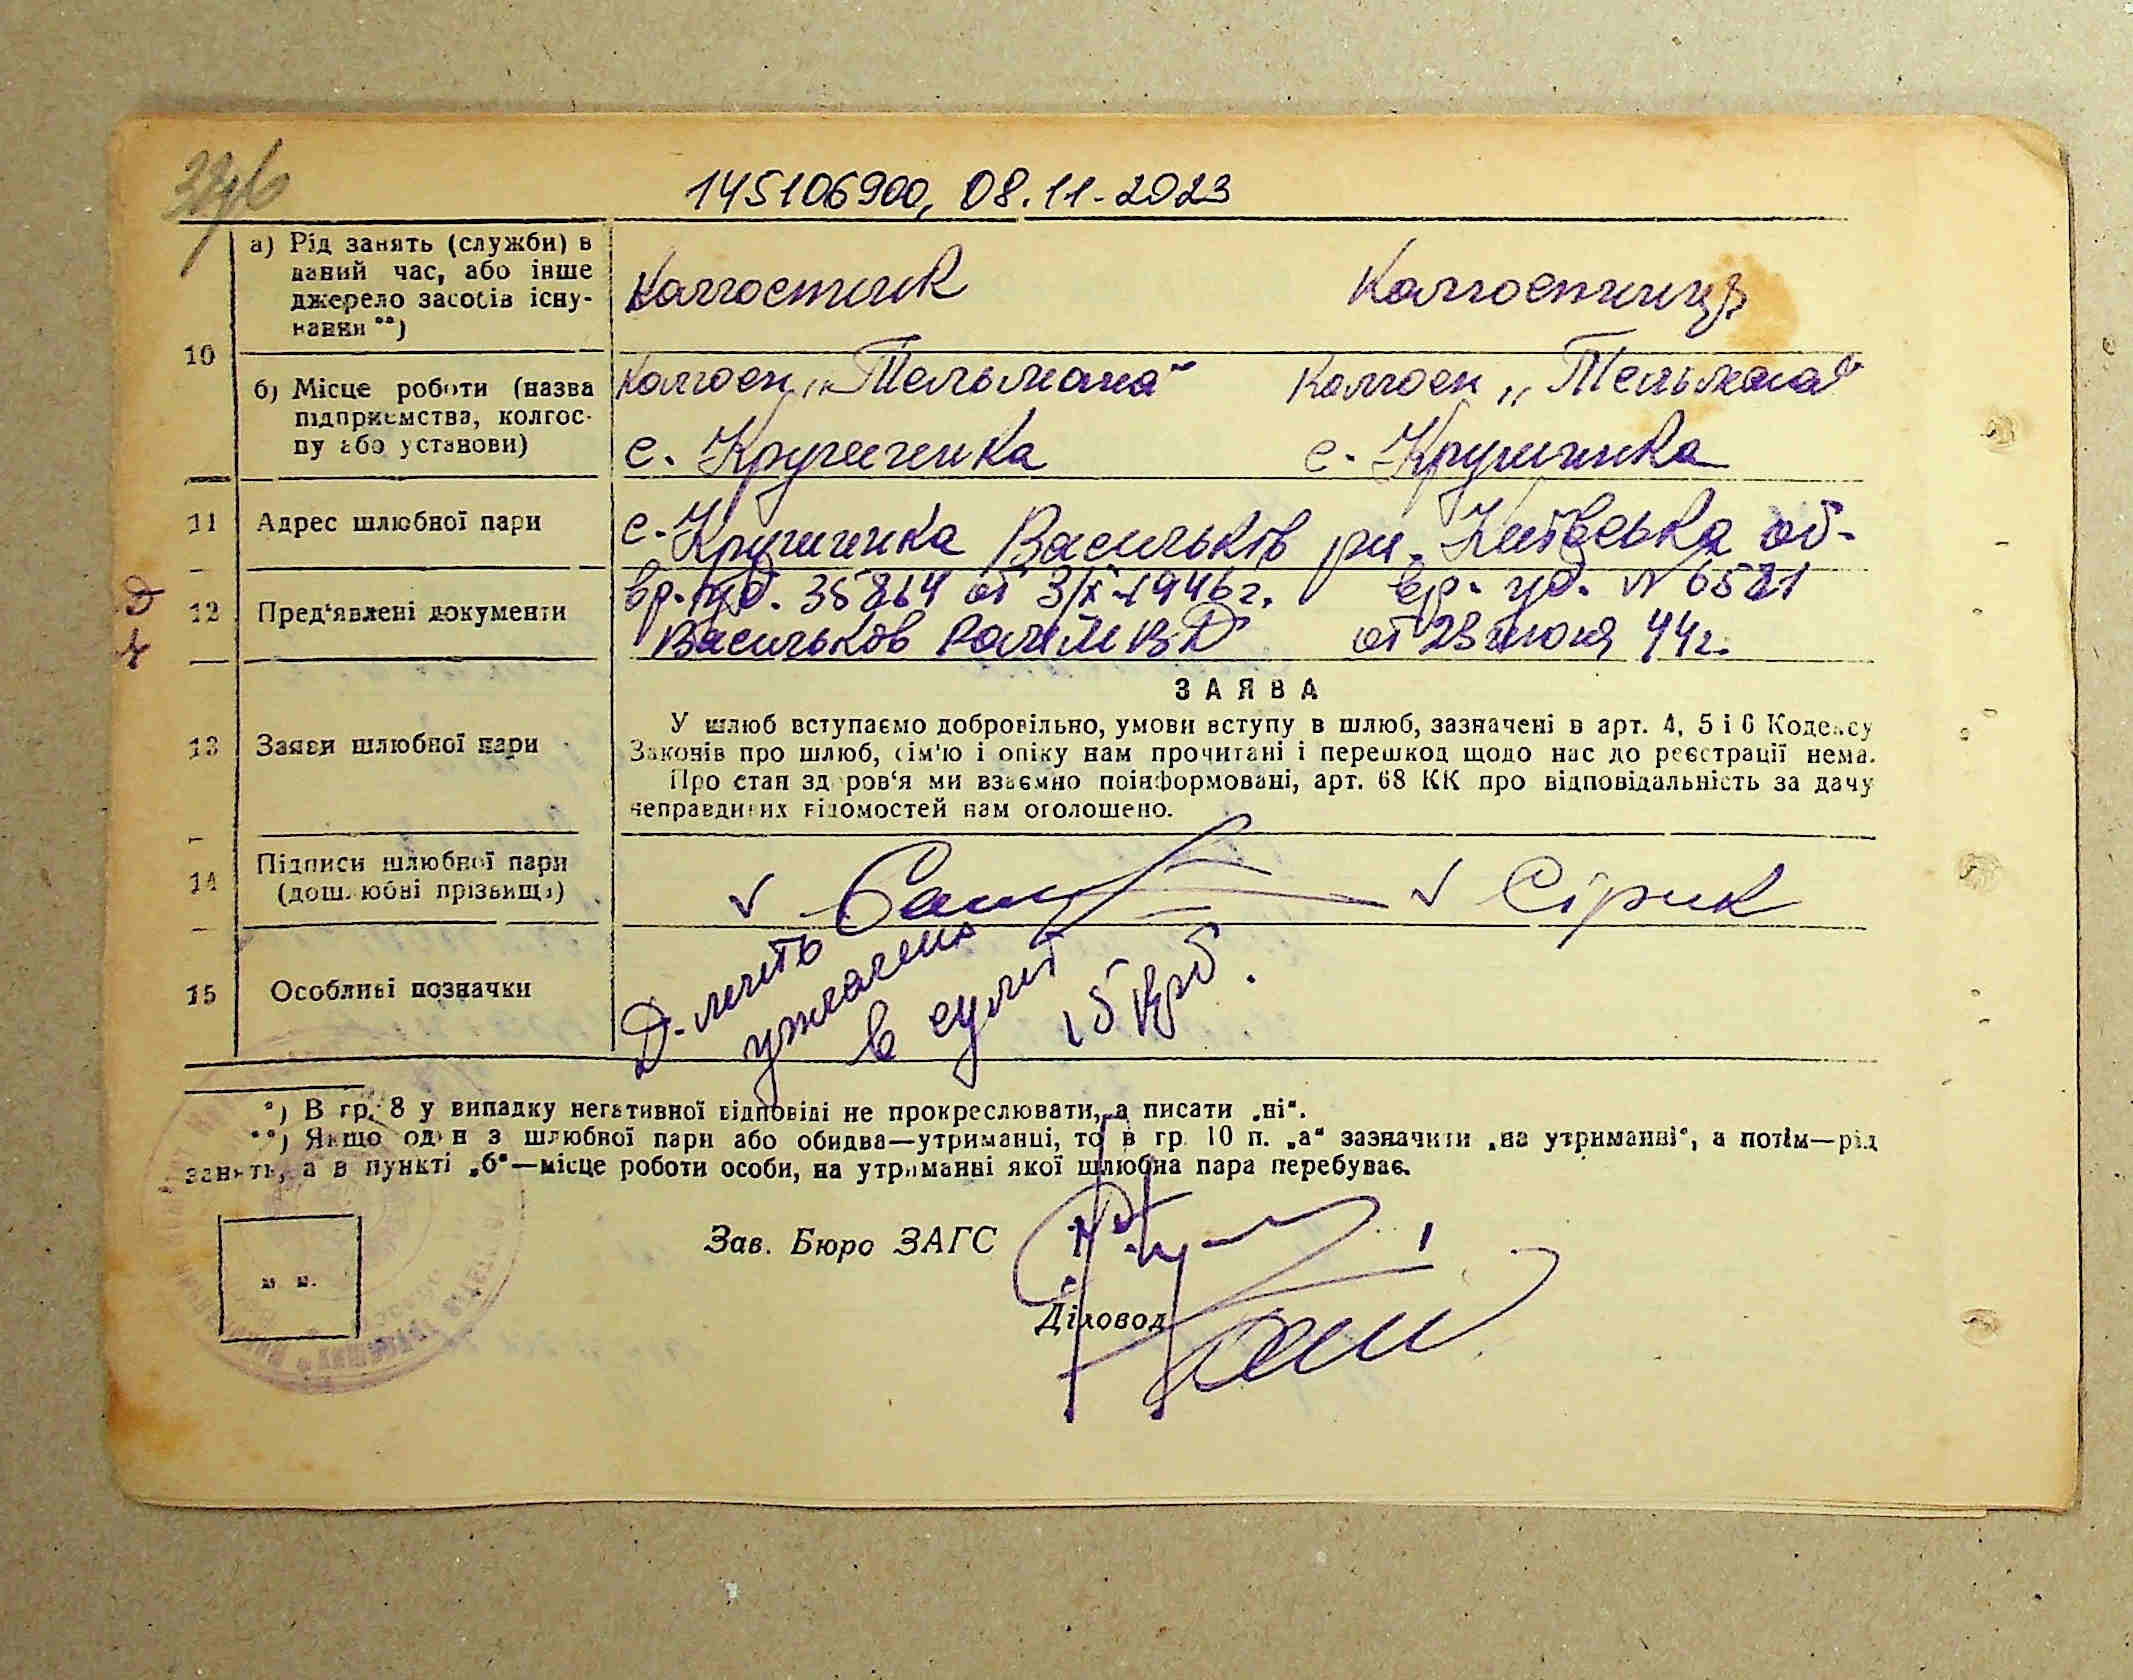 145106900, 08.11-2023
10
а) Рід занять (служби) в
даний час, або інше
джерело засобів існу-
вання **)
Колгостник
Колгостниця
б) Місце роботи (назва
підприємства, колгос-
пу або установи)
Колгосп „Тельмана"
Колгосп „Тельмана"
с. Крушинка
с. Крушинка
11
Адрес шлюбної пари
с. Крушинка Васильків рн. Київська об-
12
Пред'явлені документи
вр. уд. 35864 от 3/X-1946г.
Васильков РОМВД
вр. уд. № 6521
от 23 июня 44г.
13
Заяви шлюбної пари
ЗАЯВА
У шлюб вступаємо добровільно, умови вступу в шлюб, зазначені в арт. 4, 5 і 6 Кодексу
Законів про шлюб, сім'ю і опіку нам прочитані і перешкод щодо нас до реєстрації нема.
Про стан здоров'я ми взаємно поінформовані, арт. 68 КК про відповідальність за дачу
неправдивих відомостей нам оголошено.
14
Підписи шлюбної пари
(дошлюбні прізвища)
Сірик
15
Особливі позначки
в сумі
15 крб.
*) В гр. 8 у випадку негативної відповіді не прокреслювати, а писати „ні".
**) Якщо один з шлюбної пари або обидва—утриманці, то в гр. 10 п. „а" зазначити „на утриманні", а потім—рід
занять, а в пункті „б"—місце роботи особи, на утриманні якої шлюбна пара перебуває.
м. п.
Зав. Бюро ЗАГС
Діловод